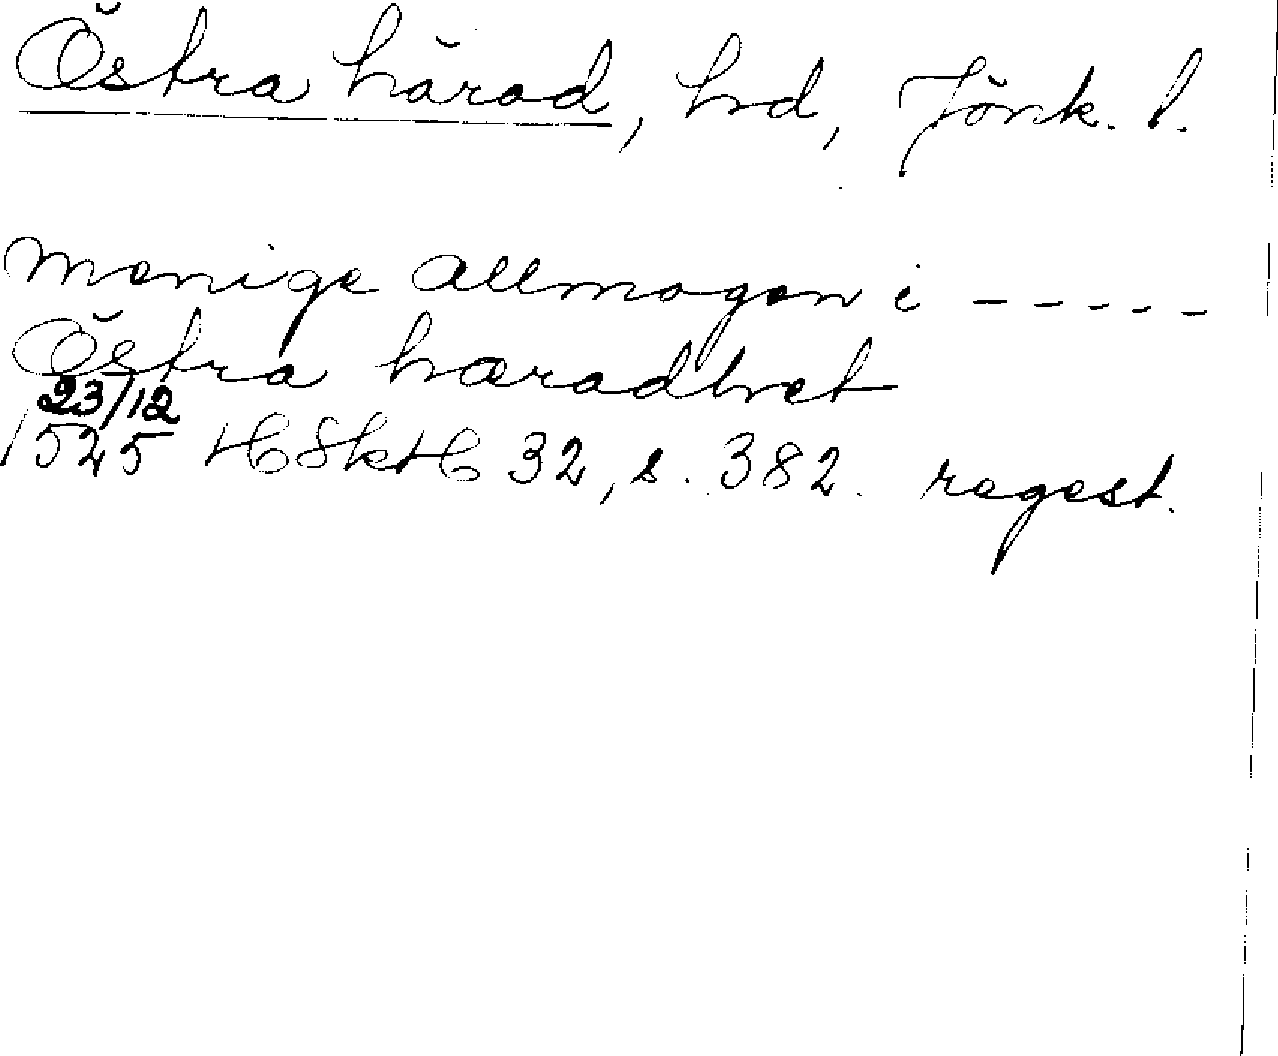 Östra härad, hd, Jönk. l.
menige allmogen i -----
Östra hæradhet
23/12
1525 HSkH 32, s. 382. regest.